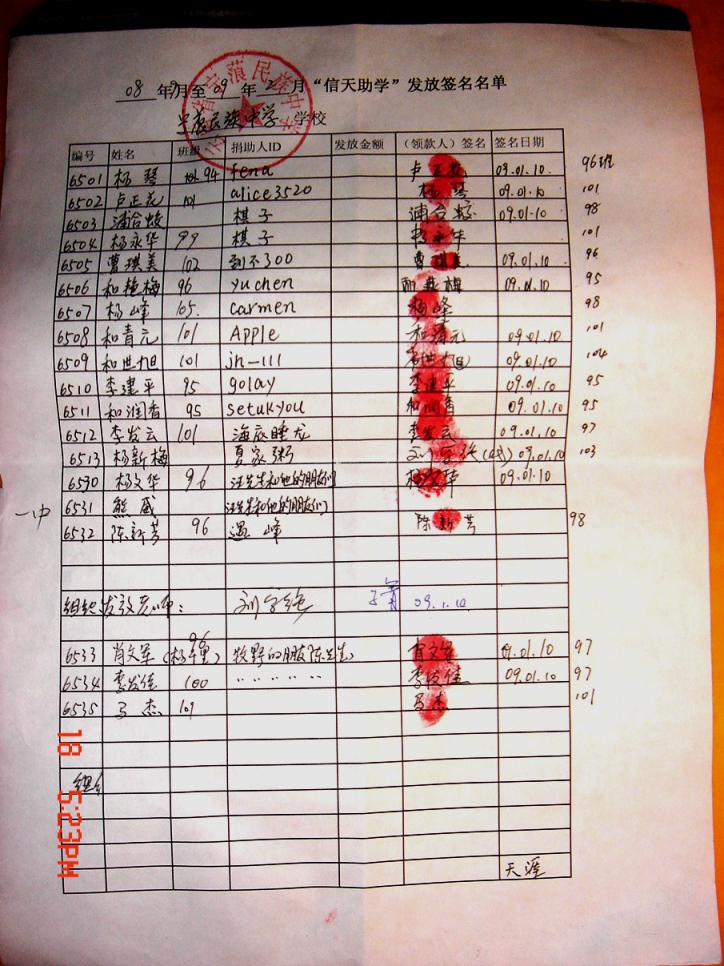 08 年 9 月至 09 年 2 月“信天助学”发放签名名单
宁蒗民族中学 学校
编号 姓名 班级 捐助人ID 发放金额 (领款人)签名 签名日期
6501 杨琴 94 fena 卢正花 09.01.10. 96班
6502 卢正花 101 alice3520 杨琴 09.01.10 101
6503 浦合姣 棋子 浦合姣 09.01.10 98
6504 杨永华 99 棋子 杨永华 101
6505 曹琪美 102 到不300 曹琪美 09.01.10. 96
6506 和艳梅 96 yuchen 09.01.10. 95
6507 杨峰 105. carmen 杨峰 98
6508 和青元 101 Apple 和青元 09.01.10 101
6509 和世旭 101 jh-111 和世旭 09.01.10 104
6510 李建平 95 golay 李建平 09.01.10 95
6511 和润香 95 setukyou 和润香 09.01.10 95
6512 李发云 101 海底睡龙 李发云 09.01.10 97
6513 杨新梅 夏家粥 09.01.10 103
6530 杨文华 96 汪先生和他的朋友们 杨文华 09.01.10
6531 熊威 汪先生和他的朋友们
一中
6532 陈新芳 96 过峰 陈新芳 98
组织发放老师: 09.1.10
6533 肖文军 96 牧野的朋友陈先生 肖文军 09.01.10 97
6534 李发佳 100 〃 〃 〃 〃 〃 〃 李发佳 09.01.10 97
6535 马杰 101 马杰 101
天涯
18 5:23PM